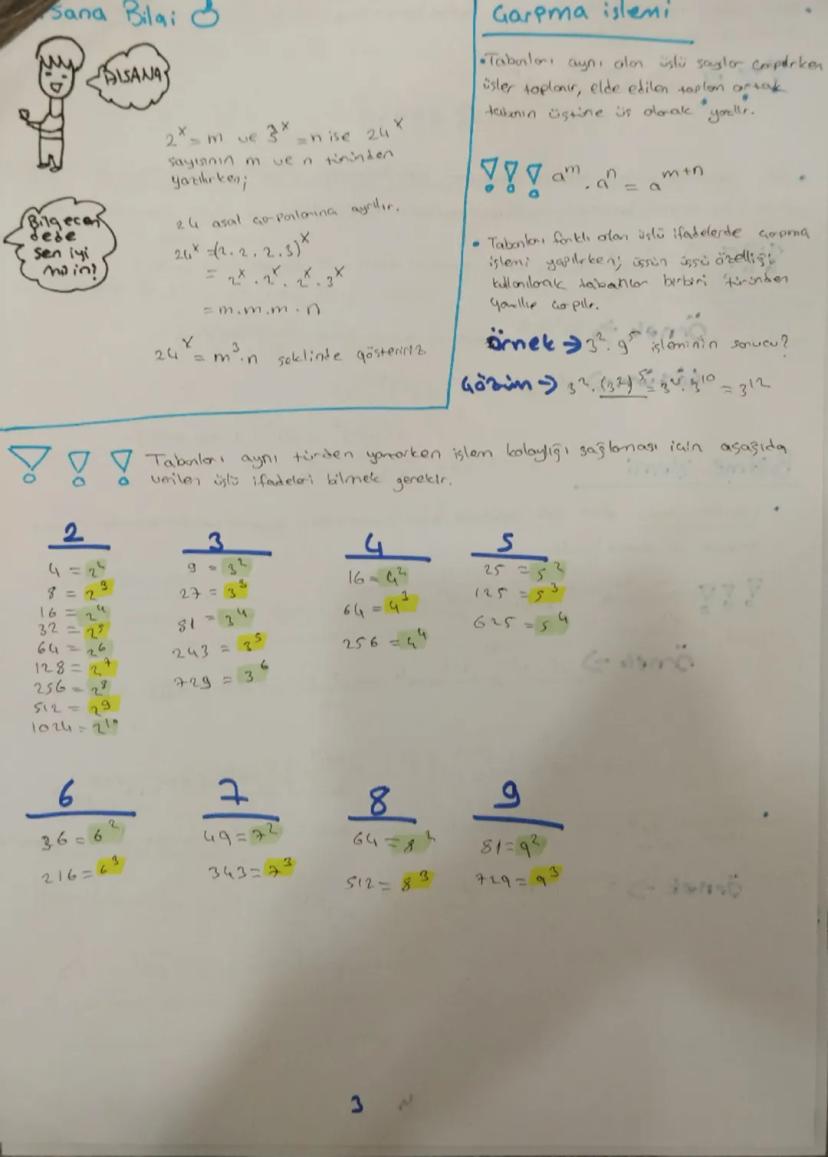 sana Bilgi
DISANA
2^x = m ve 3^x = n ise 24^x
sayısının m ve n türünden
yazılırken;
24 asal çarpanlarına ayrılır.
24^x = (2.2.2.3)^x
= 2^x . 2^x . 2^x . 3^x
= m.m.m.n
24^x = m^3.n şeklinde gösteririz
Bilgecan
dede
sen iyi
mi in?
Çarpma işlemi
• Tabanları aynı olan üslü sayılar çarpılırken
üsler toplanır, elde edilen toplam ortak
tabanın üstüne üs olarak yazılır.
!!! a^m . a^n = a^m+n
• Tabanları farklı olan üslü ifadelerde çarpma
işlemi yapılırken; üssün üssü özelliği
kullanılarak tabanlar birbiri türünden
yazılıp çarpılır.
Örnek → 3^2 . 9^5 işleminin sonucu?
Çözüm → 3^2 . (3^2)^5 = 3^2 . 3^10 = 3^12
!!! Tabanları aynı türden yazarken işlem kolaylığı sağlaması için aşağıda
verilen üslü ifadeleri bilmek gerekir.
2
4 = 2^2
8 = 2^3
16 = 2^4
32 = 2^5
64 = 2^6
128 = 2^7
256 = 2^8
512 = 2^9
1024 = 2^10
3
9 = 3^2
27 = 3^3
81 = 3^4
243 = 3^5
729 = 3^6
4
16 = 4^2
64 = 4^3
256 = 4^4
5
25 = 5^2
125 = 5^3
625 = 5^4
6
36 = 6^2
216 = 6^3
7
49 = 7^2
343 = 7^3
8
64 = 8^2
512 = 8^3
9
81 = 9^2
729 = 9^3
3